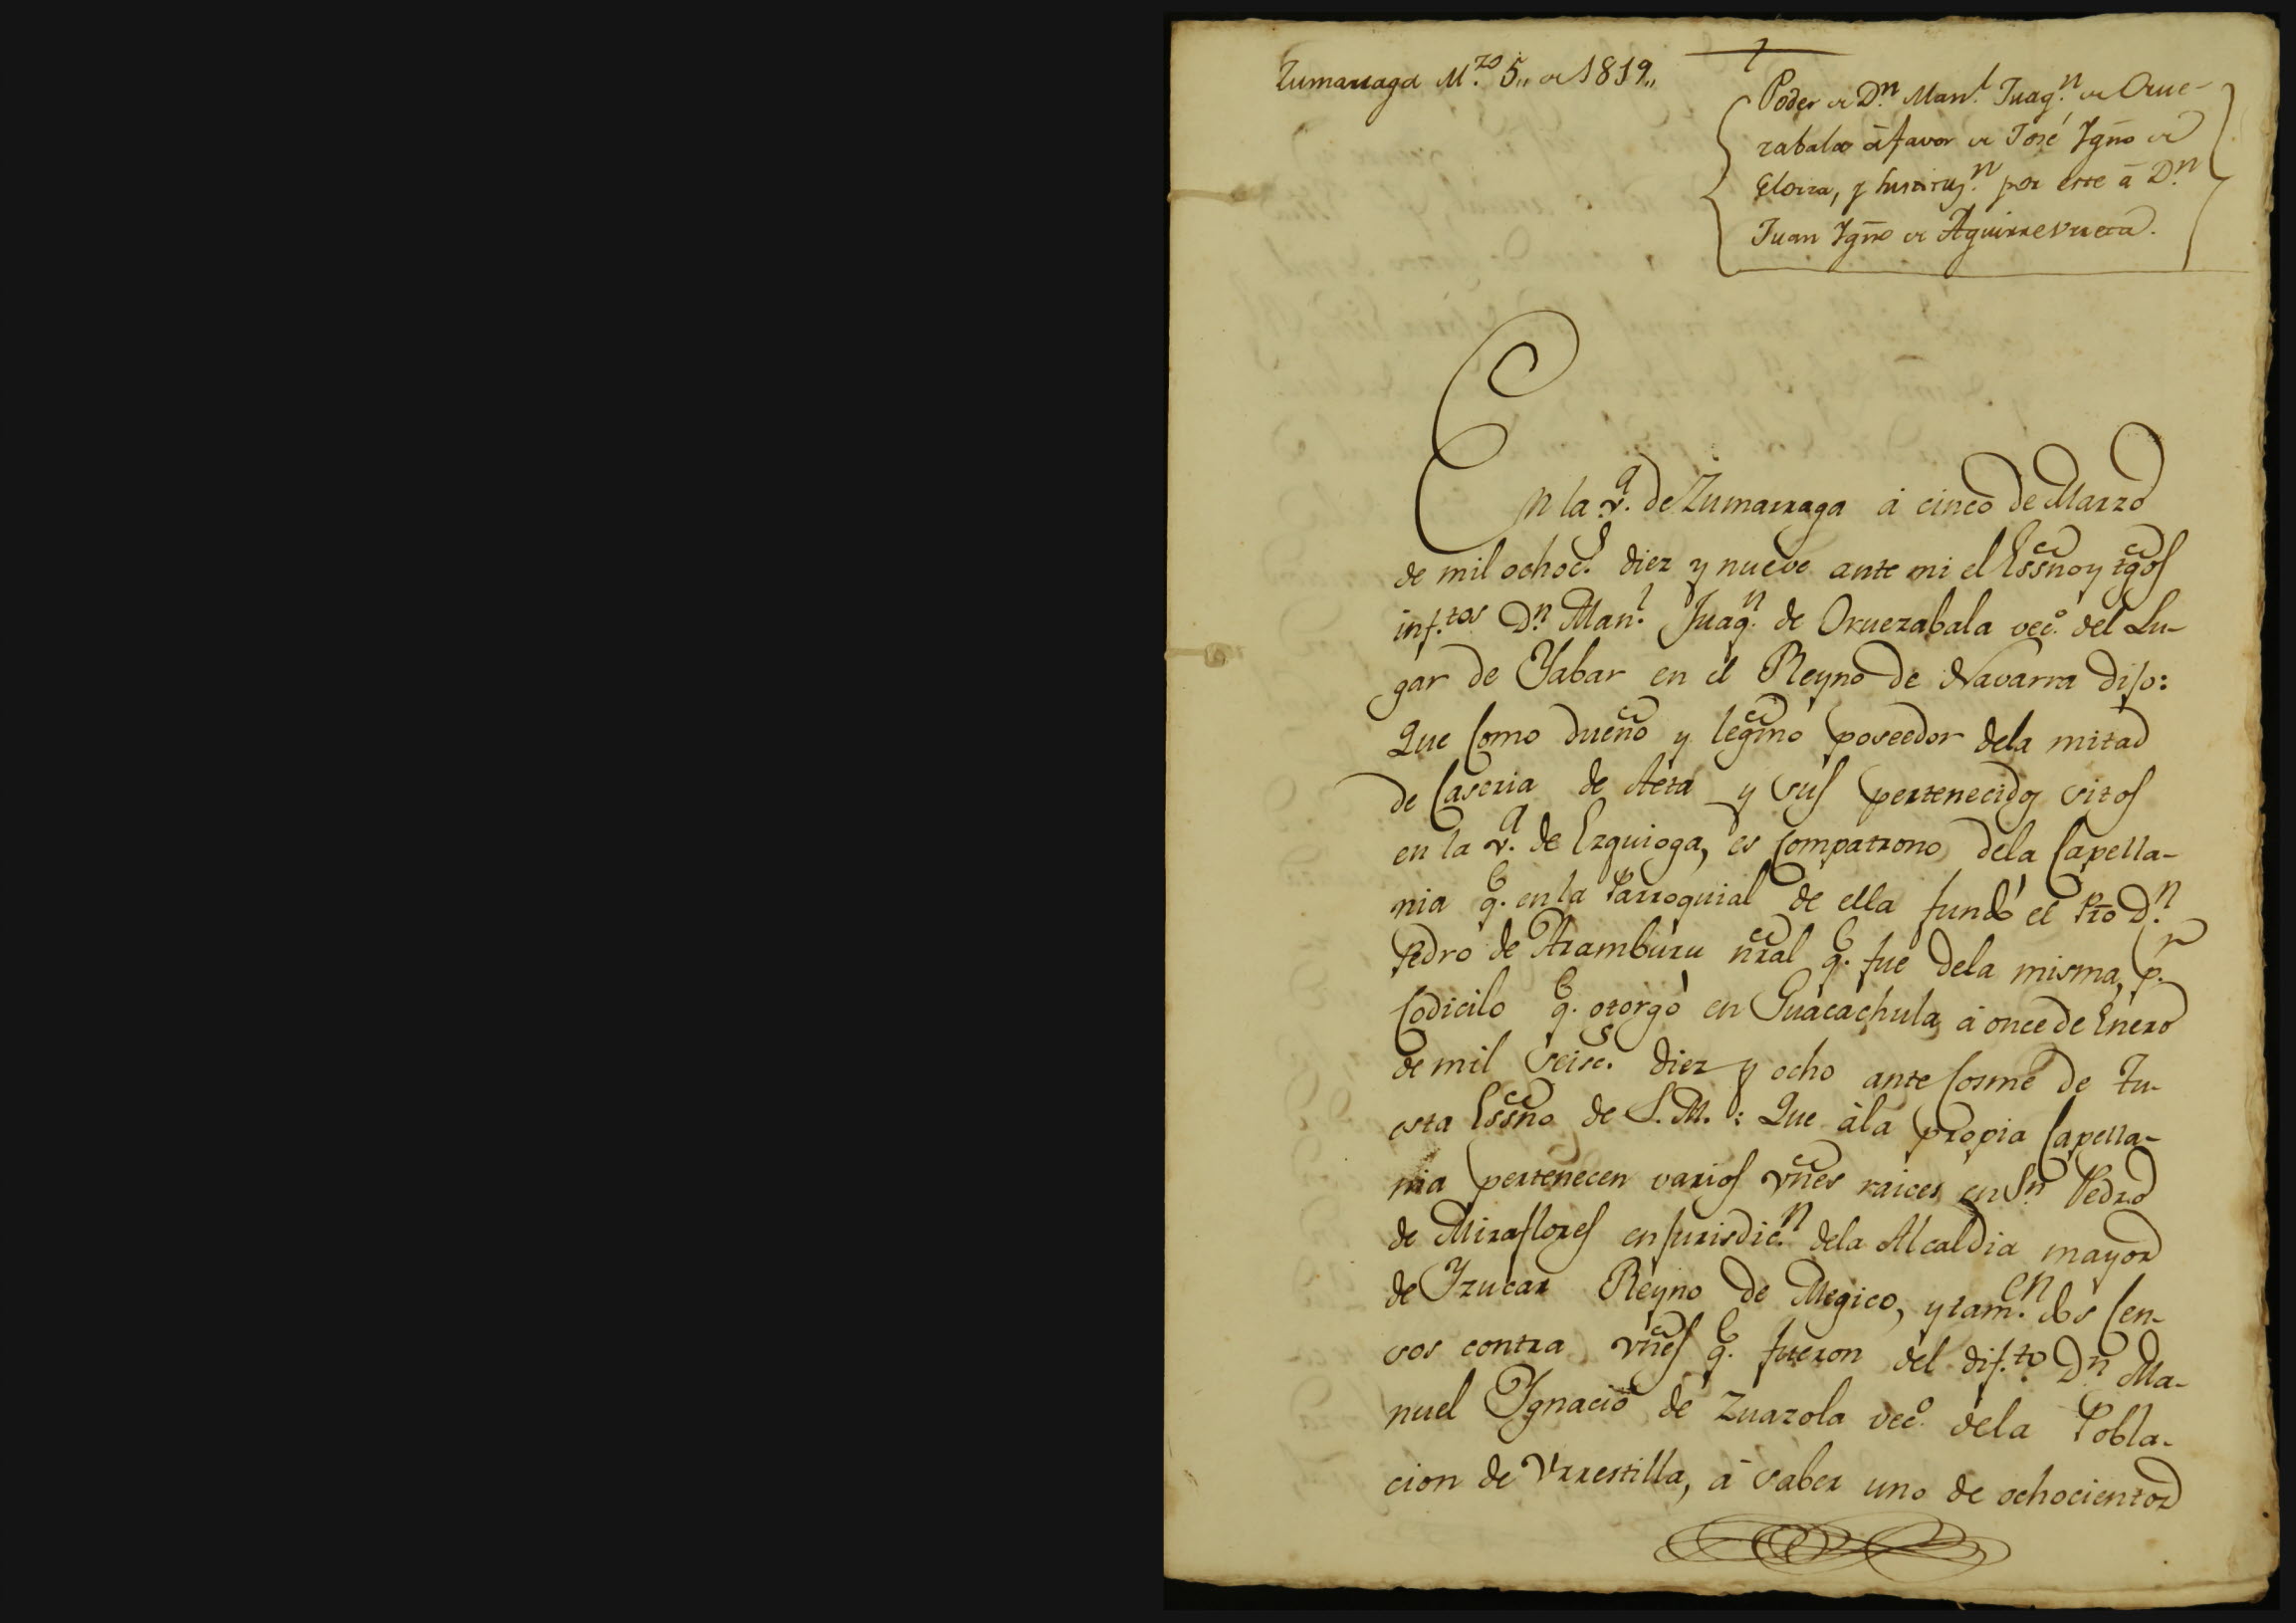 Zumarraga M.zo 5,, de 1819,,
Poder de D.n Man.l Juaq.n de Orue-
zabala á favor de José Ygño de
Elorza, y sustituz.n por este á D.n
Juan Ygño de Aguirreurreta.
En la v.a de Zumarraga á cinco de Marzo
de mil ochoc.s diez y nueve ante mi el Essno y tgos
inf.tos D.n Man.l Juaq.n de Oruezabala vec.o del Lu-
gar de Yabar en el Reyno de Navarra dijo:
Que como dueño y legmo poseedor dela mitad
de Caseria de Aeta y sus pertenecidos sitos
en la v.a de Ezquioga, es Compatrono dela Capella-
nia q.e en la Parroquial de ella fundó el Pro D.n
Pedro de Aramburu nral q.e fue dela misma, p.r
Codicilo q.e otorgó en Guacachula á once de Enero
de mil seisc.s diez y ocho ante Cosme de Tu-
esta Essno de S.M.: Que á la propia Capella-
nia pertenecen varios vnes raices en Sn Pedro
de Miraflores en jurisdic.n dela Alcaldia mayor
de Yzucar Reyno de Megico, y tam.en dos Cen-
sos contra vnes q.e fueron del dif.to Dn Ma-
nuel Ygnacio de Zuazola vec.o dela Pobla-
cion de Vrrestilla, á saber uno de ochocientos